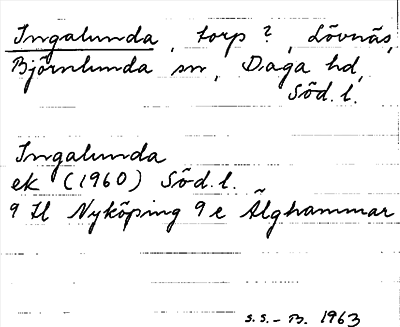 Ingalunda, torp?, Lövnäs,
Björnlunda sn, Daga hd,
Söd. l.
Ingalunda
ek (1960) Söd. l.
9 H Nyköping 9 e Älghammar
S.S.-B. 1963